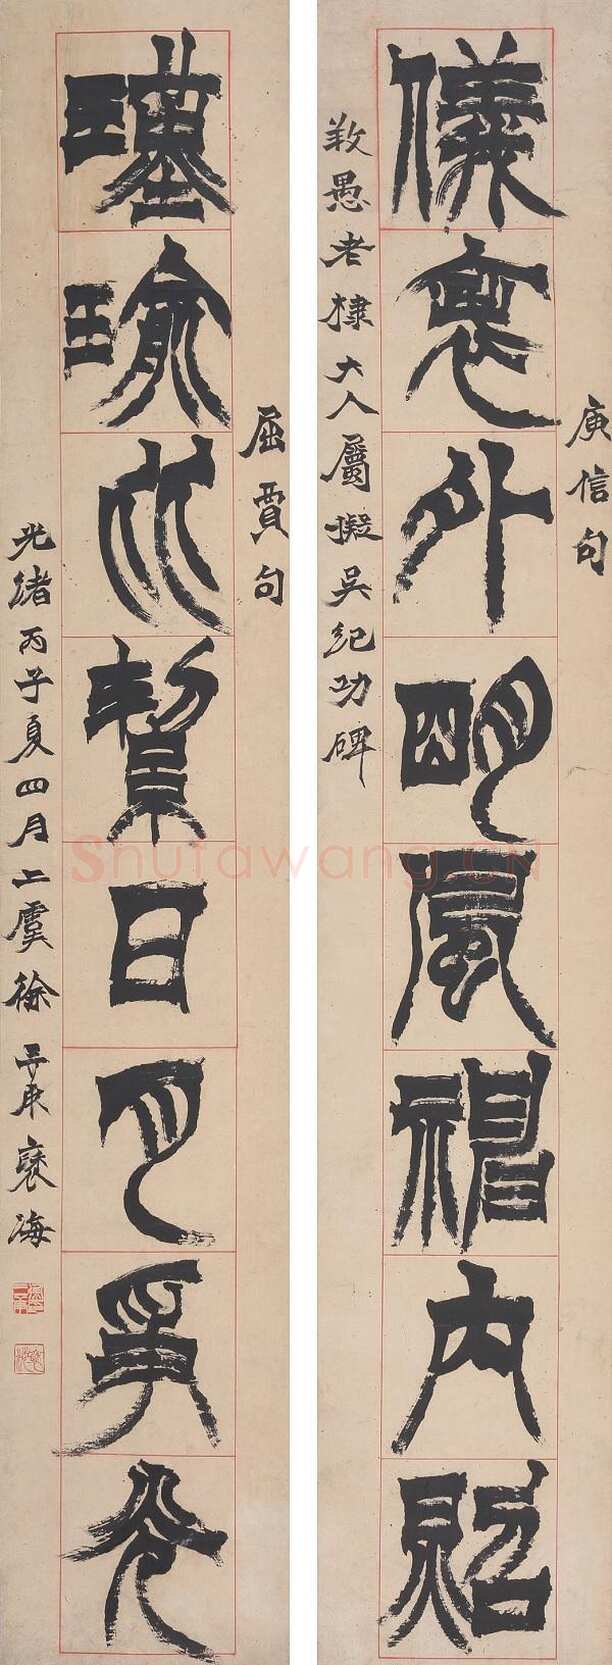 庾信句
儀表外明風神內照
愚老棣大人屬擬吳紀功碑
屈賈句
瑾瑜比日月爭光
光緒丙子夏四月上虞徐三庚褎海
Shufawang.CN